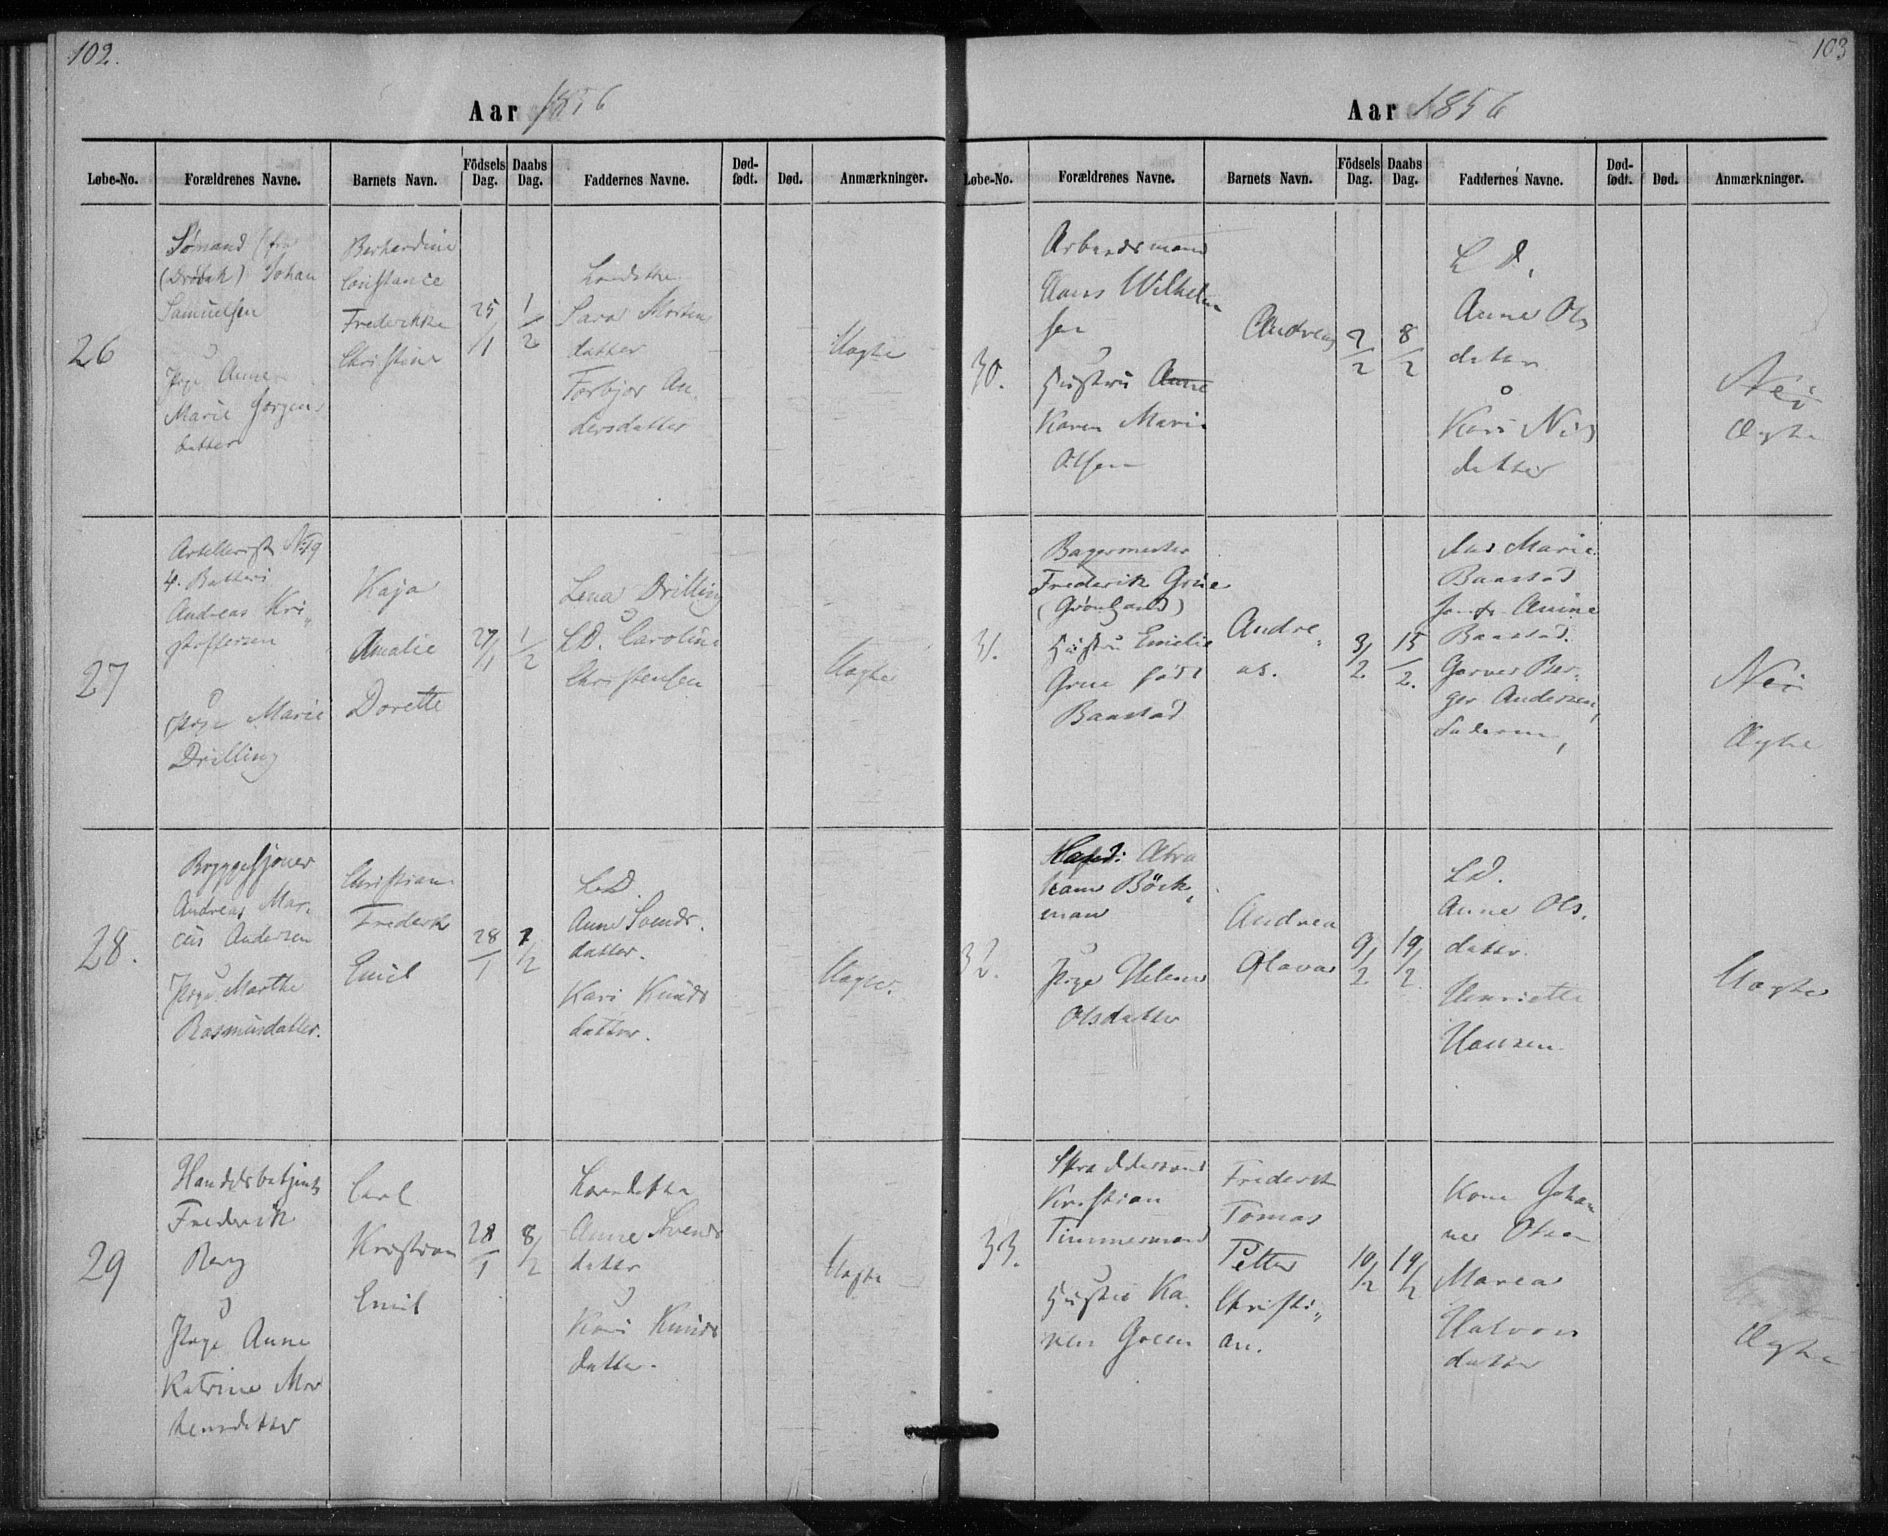 102.
Aar 1856
Løbe-No. Forældrenes Navne. Barnets Navn. Födsels Dag. Daabs Dag. Faddernes Navne. Död-födt. Död. Anmærkninger.
26
Sömand (fra
(Dröbak) Johan
Samuelsen
Pige Anne
Marie Jørgens
datter
Berhardine
Constance
Frederikke
Christine
25/1
1/2
Sara Morten
datter
Torbjor An-
dersdatter
Uægte
27
Artillerist No 19
4. Batteri
Andreas Kri„
stoffersen
Pige Marie
Drilling
Kaja
Amalie
Dorette
27/1
1/2
Lena Drilling
L.D. Caroline
Christensen
Uægte
28.
Andreas Mar-
cus Andersen
Pige Marthe
Rasmusdatter.
Christian
Frederik
Emil
28/1
1/2
L.D.
Anne Svends-
datter.
Kari Knuds
datter.
Uægte.
29
Frederik
Berg
Pige Anne
Katrine Mor
tensdatter
Carl
Kristian
Emil
28/1
8/2
Anne Svends
datter
Kari Knuds
datter.
Uægte
103
Aar 1856
Løbe-No. Forældrenes Navne. Barnets Navn. Födsels Dag. Daabs Dag. Faddernes Navne. Död-födt. Död. Anmærkninger.
30.
Arbeidsmand
Hans Wilhelm
sen
Hustru Anne
Karen Marie
Olsen
Andreas
2/2
8/2
L D.
Anne Ols
datter
Kari Nils
datter
Nei
Ægte
31.
Bagermester
Frederik Grüe
(Grönland)
Hustru Emelie
Grue född
Baastad
Andre„
as.
3/2
15/2.
Marie
Baastad
Jomfr Anine
Baastad.
Garver Ber-
ger Andersen,
Faderen,
Nei
Ægte
32.
Abra
ham Böck„
man
Pige Helene
Olsdatter
Andrea
Olava
9/2
19/2
L.D.
Anne Ols.
datter.
Henriette
Hansen.
Uægte
33.
Skräddersvend
Kristian
Timmermand
Hustru Ka-
ren Green
Frederik
Tomas
Petter
Christi„
an.
10/2
19/2
Kone Johan
ne Olsen
Maren
Halvors
datter
Ægte